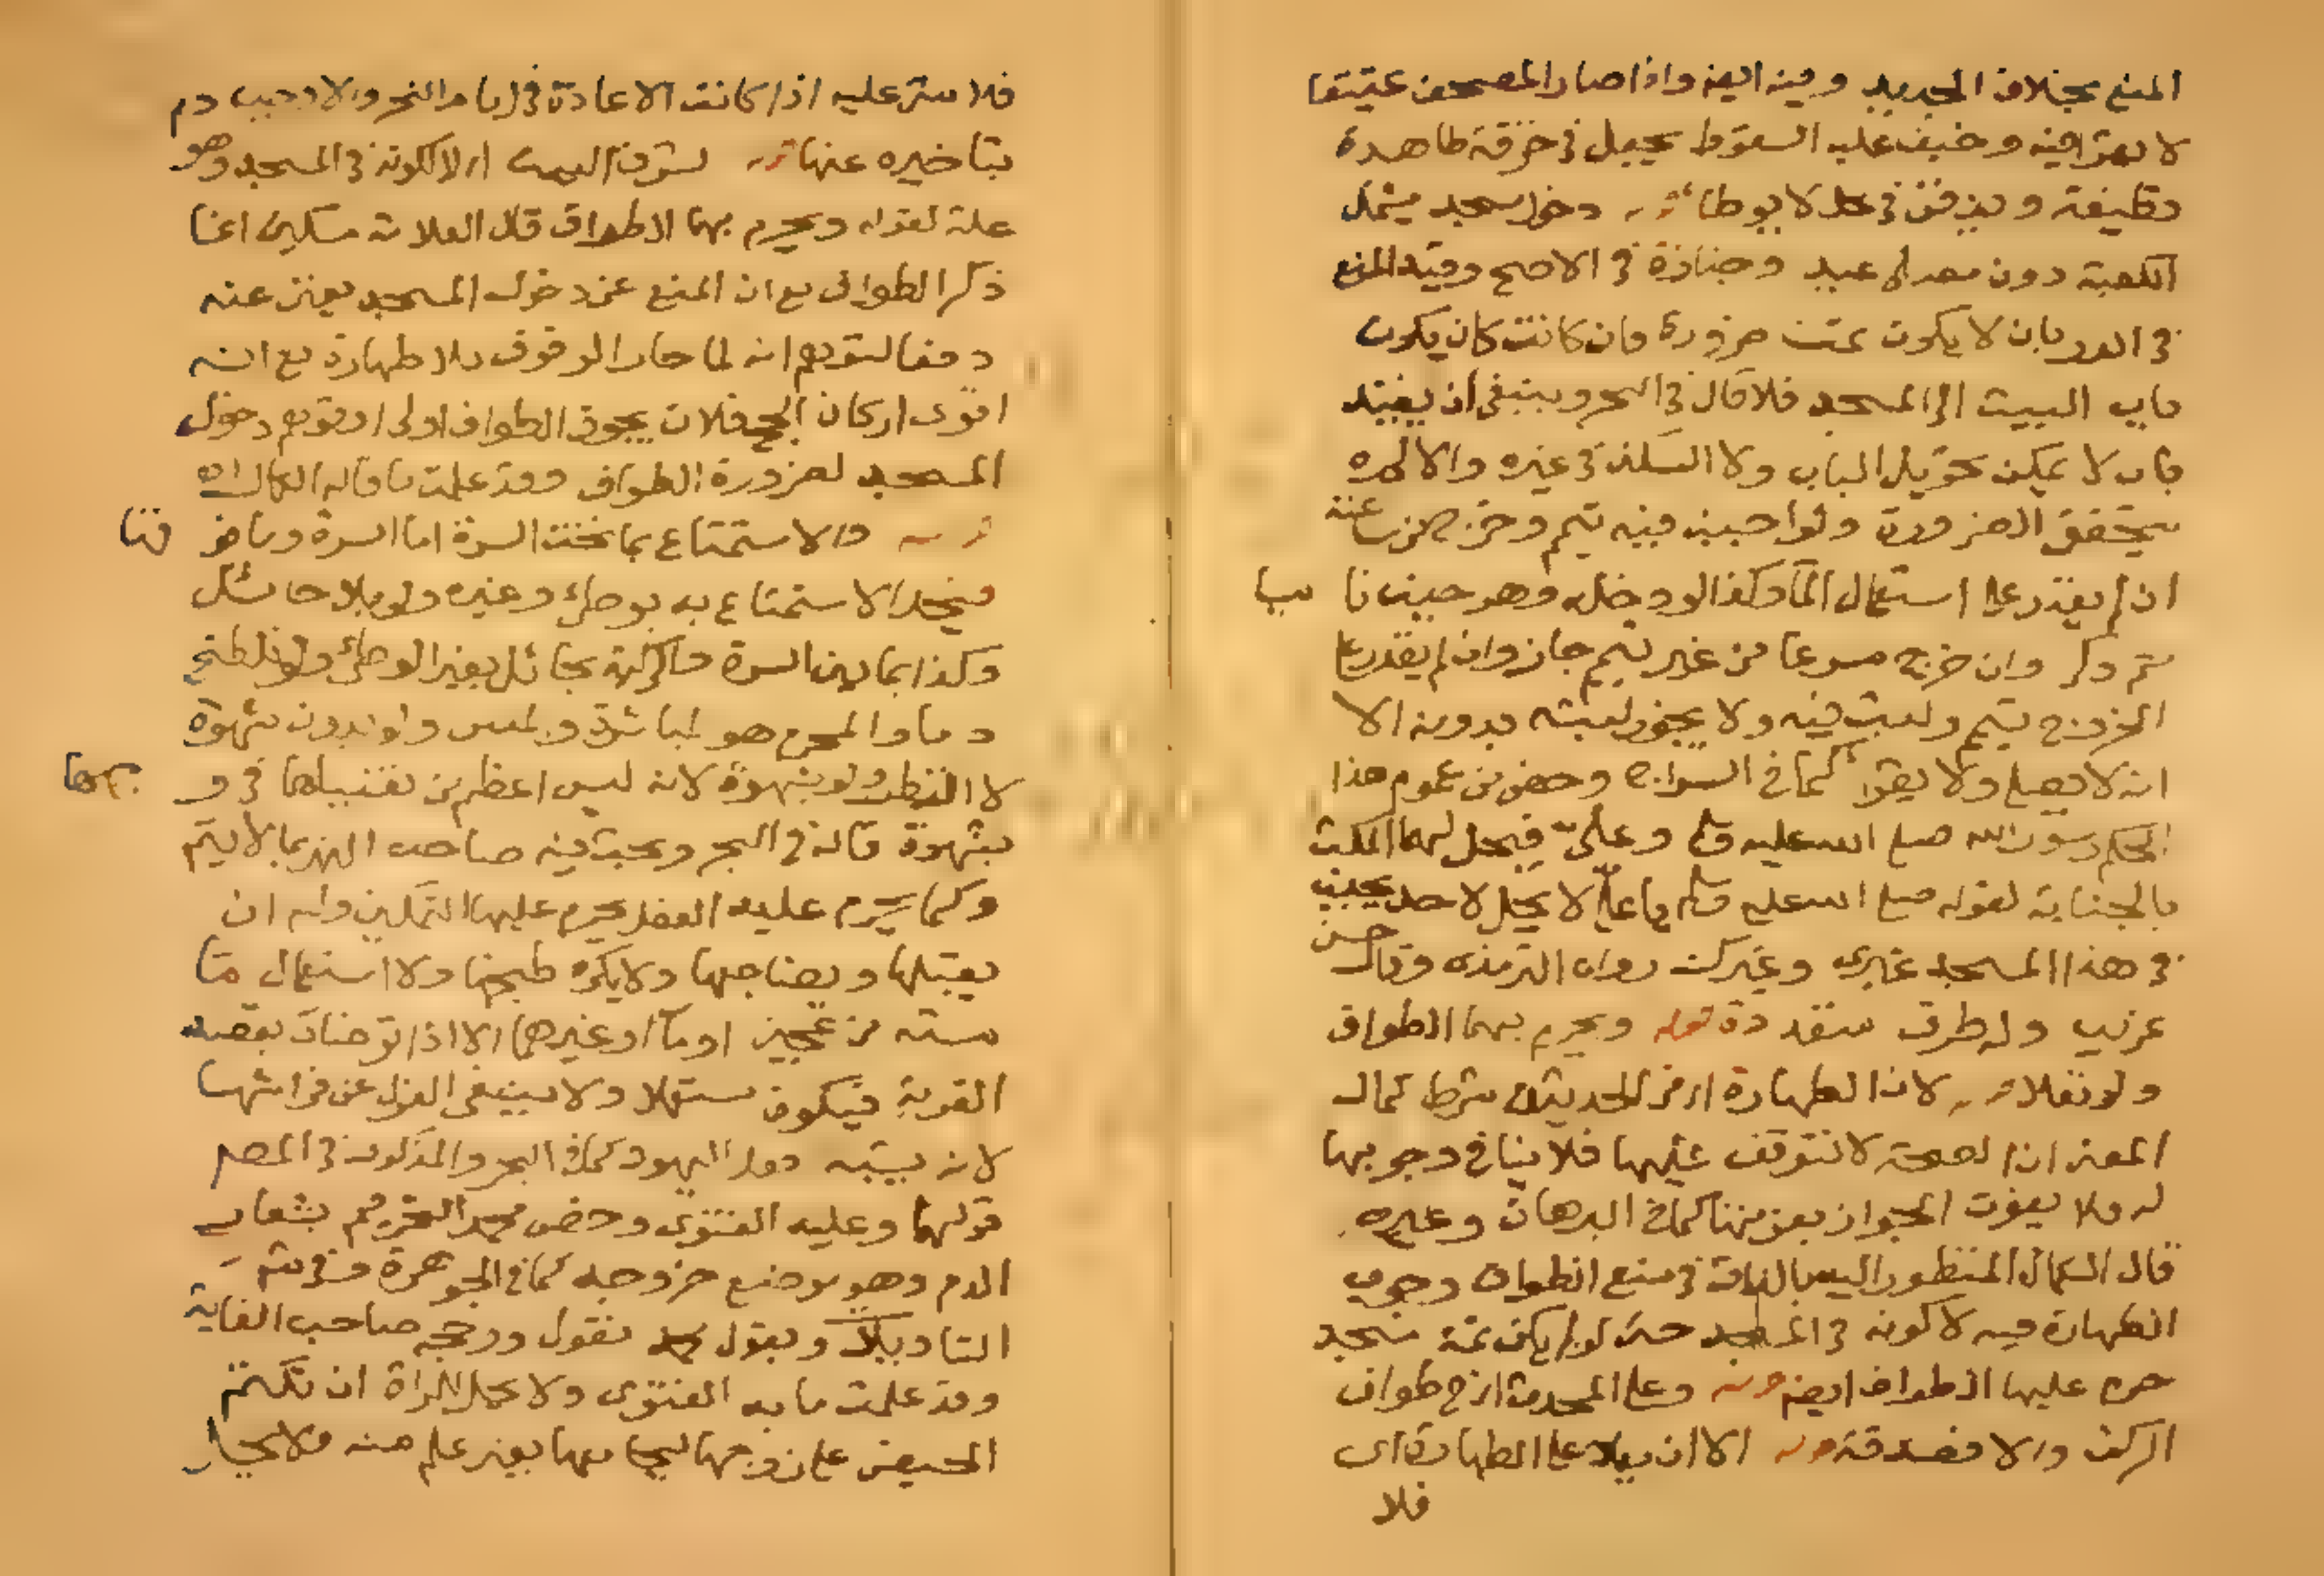 المنع بخلاف الجديد وفيه ايضا واذا صار المصحف عتيقا
لا يقرا فيه وخيف عليه السقوط يجعل في خرقة طاهرة
نظيفة ويدفن في محل لا يوطا قوله دخول مسجد يشمل
الكعبة دون مصلى عيد وجنازة في الاصح وقيد المنع
في الدرر بان لا يكون عن ضرورة فان كانت كان يكون
باب البيت الى المسجد فلا قال في البحر وينبغي ان يقيد
بان لا يمكن تحويل الباب ولا السكنى في غيره والا لم
تتحقق الضرورة ولو اجنب فيه تيمم وخرج من ساعته
ان لم يقدر على استعمال الماء وكذا لو دخله وهو جنب نا سيا
ثم ذكر وان خرج مسرعا من غير تيمم جاز وان لم يقدر على
الخروج تيمم ولبث فيه ولا يجوز لبثه بدونه الا
انه لا يصلي ولا يقرا كما في السراج وخص من عموم هذا
الحكم رسول الله صلى الله عليه وسلم وعلي فيحل لهما المكث
بالجنابة لقوله صلى الله عليه وسلم يا علي لا يحل لاحد يجنب
في هذا المسجد غيري وغيرك رواه الترمذي وقال حسن
غريب وله طرق متعددة قوله ويحرم بهما الطواف
ولو نفلا قوله لان الطهارة اي من الحدثين شرط كمال
المعنى ان الصحة لا تتوقف عليها فلا ينافي وجوبها
له ولا يفوت الجواز بفوتها كما في البرهان وغيره
قال الكمال المنظور اليه بالذات في منع الطواف وجوب
الطهارة فيه لا كونه في المسجد حتى لو لم يكن ثمة مسجد
حرم عليها الطواف ايضا قوله وعلى المحدث اي في طواف
الركن والا فصدقة قوله الا ان يعاد على الطهارة اي
فلا
فلا شئ عليه اذا كانت الاعادة في ايام النحر والا وجب دم
بتاخيره عنها قوله لشرف البيت اي لا لكونه في المسجد وهو
علة لقوله ويحرم بهما الطواف قال العلامة مسكين انما
ذكر الطواف مع ان المنع عن دخول المسجد يغني عنه
دفعا لتوهم انه لما جاز الوقوف بلا طهارة مع انه
اقوى اركان الحج فلان يجوز الطواف اولى او توهم دخول
المسجد لضرورة الطواف وقد علمت ما قاله الكمال اه
قوله والاستمتاع بما تحت السرة اما السرة وما فو قها
فيحل الاستمتاع به بوطئ وغيره ولو بلا حائل
وكذا بما بين السرة والركبة بحائل بغير الوطئ ولو تلطخ
دما والمحرم هو المباشرة ولمس ولو بدون شهوة
لا النظر ولو بشهوة لانه ليس اعظم من تقبيلها في و جهها
بشهوة قاله في البحر وبحث فيه صاحب النهر بما لا يتم
وكما يحرم عليه الفعل يحرم عليها التمكين وله ان
يقبلها ويضاجعها ولا يكره طبخها ولا استعمال ما
مسته من عجين او ماء او غيرهما الا اذا توضات بقصد
القربة فيكون مستعملا ولا ينبغي العزل عن فراشها
لانه يشبه فعل اليهود كما في البحر والمذكور في المصـ
قولهما وعليه الفتوى وخص محمد التحريم بشعار
الدم وهو موضع خروجه كما في الجوهرة وفي شرح
التاويلات وبقول محمد نقول ورجحه صاحب الغاية
وقد علمت ما به الفتوى ولا يحل للمراة ان تكتم
الحيض على زوجها ليجامعها بغير علم منه ولا يحل